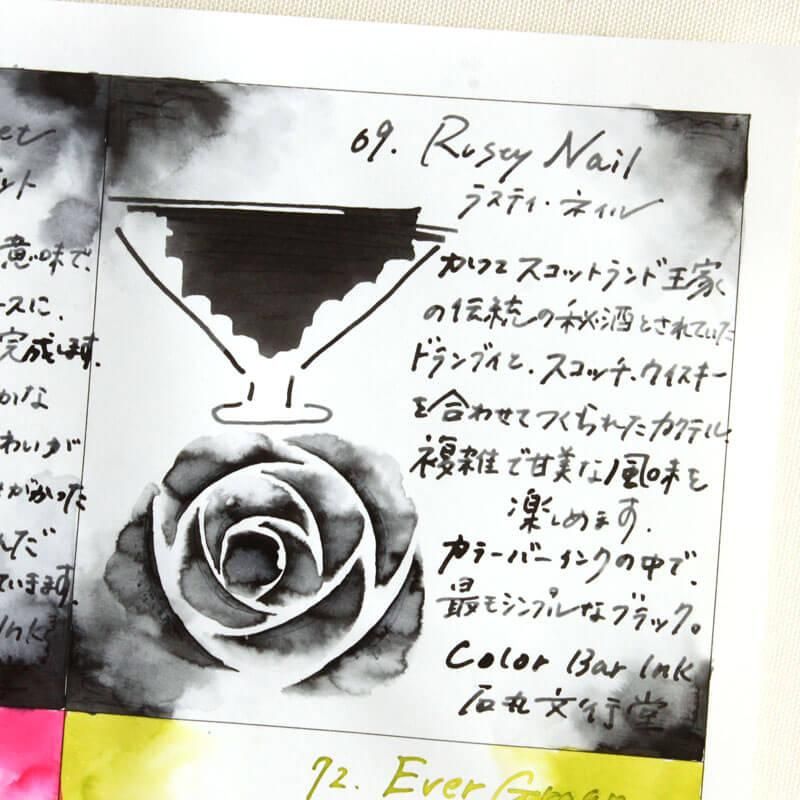 et
ット
意味で、
ースに、
完成します。
かな
わいが
がかった
んだご
ています。
Ink
69. Rusty Nail
ラスティ・ネイル
かつてスコットランド王家
の伝統の秘酒とされていた
ドランブイと、スコッチ、ウイスキー
を合わせてつくられたカクテル。
複雑で甘美な風味を
楽しめます。
カラーバーインクの中で、
最もシンプルなブラック。
Color Bar Ink
石丸文行堂
72. Ever